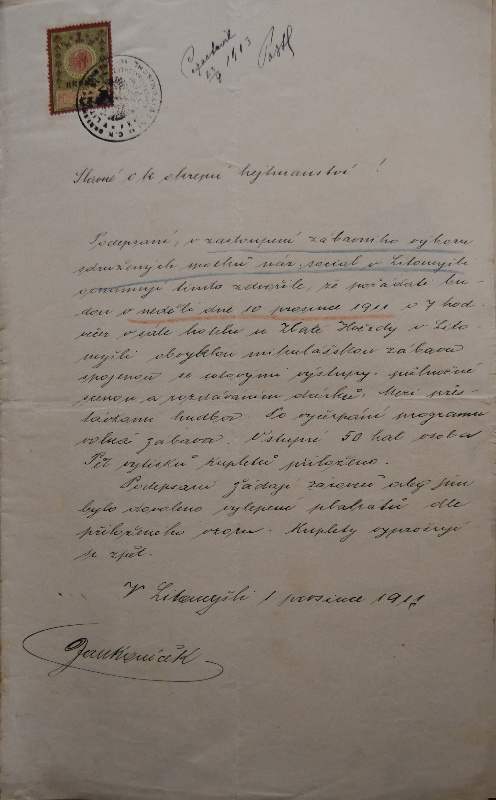 1913
Slavné c k okresní hejtmanství !
Podepsaní, v zastoupení zábavního výboru
sdružených spolků nár. social v Litomyšli
oznamují tímto zdvořile, že pořádati bu-
dou v neděli dne 10 prosince 1911 o 7 hod
večer v sále hotelu u Zlaté Hvězdy v Lito-
myšli obvyklou mikulášskou zábavu
spojenou se solovými výstupy, půlnoční
scenou a rozdáváním dárků. Mezi pře-
stávkami hudba. Po vyčerpání programu
volná zábava. Vstupné 50 hal osoba
Pět výtisků kupletů přiloženo.
Podepsaní žádají zároveň aby jim
bylo dovoleno vylepení plakátů dle
přiloženého vzoru. Kuplety vyprošují
se zpět.
V Litomyšli 1 prosince 1911